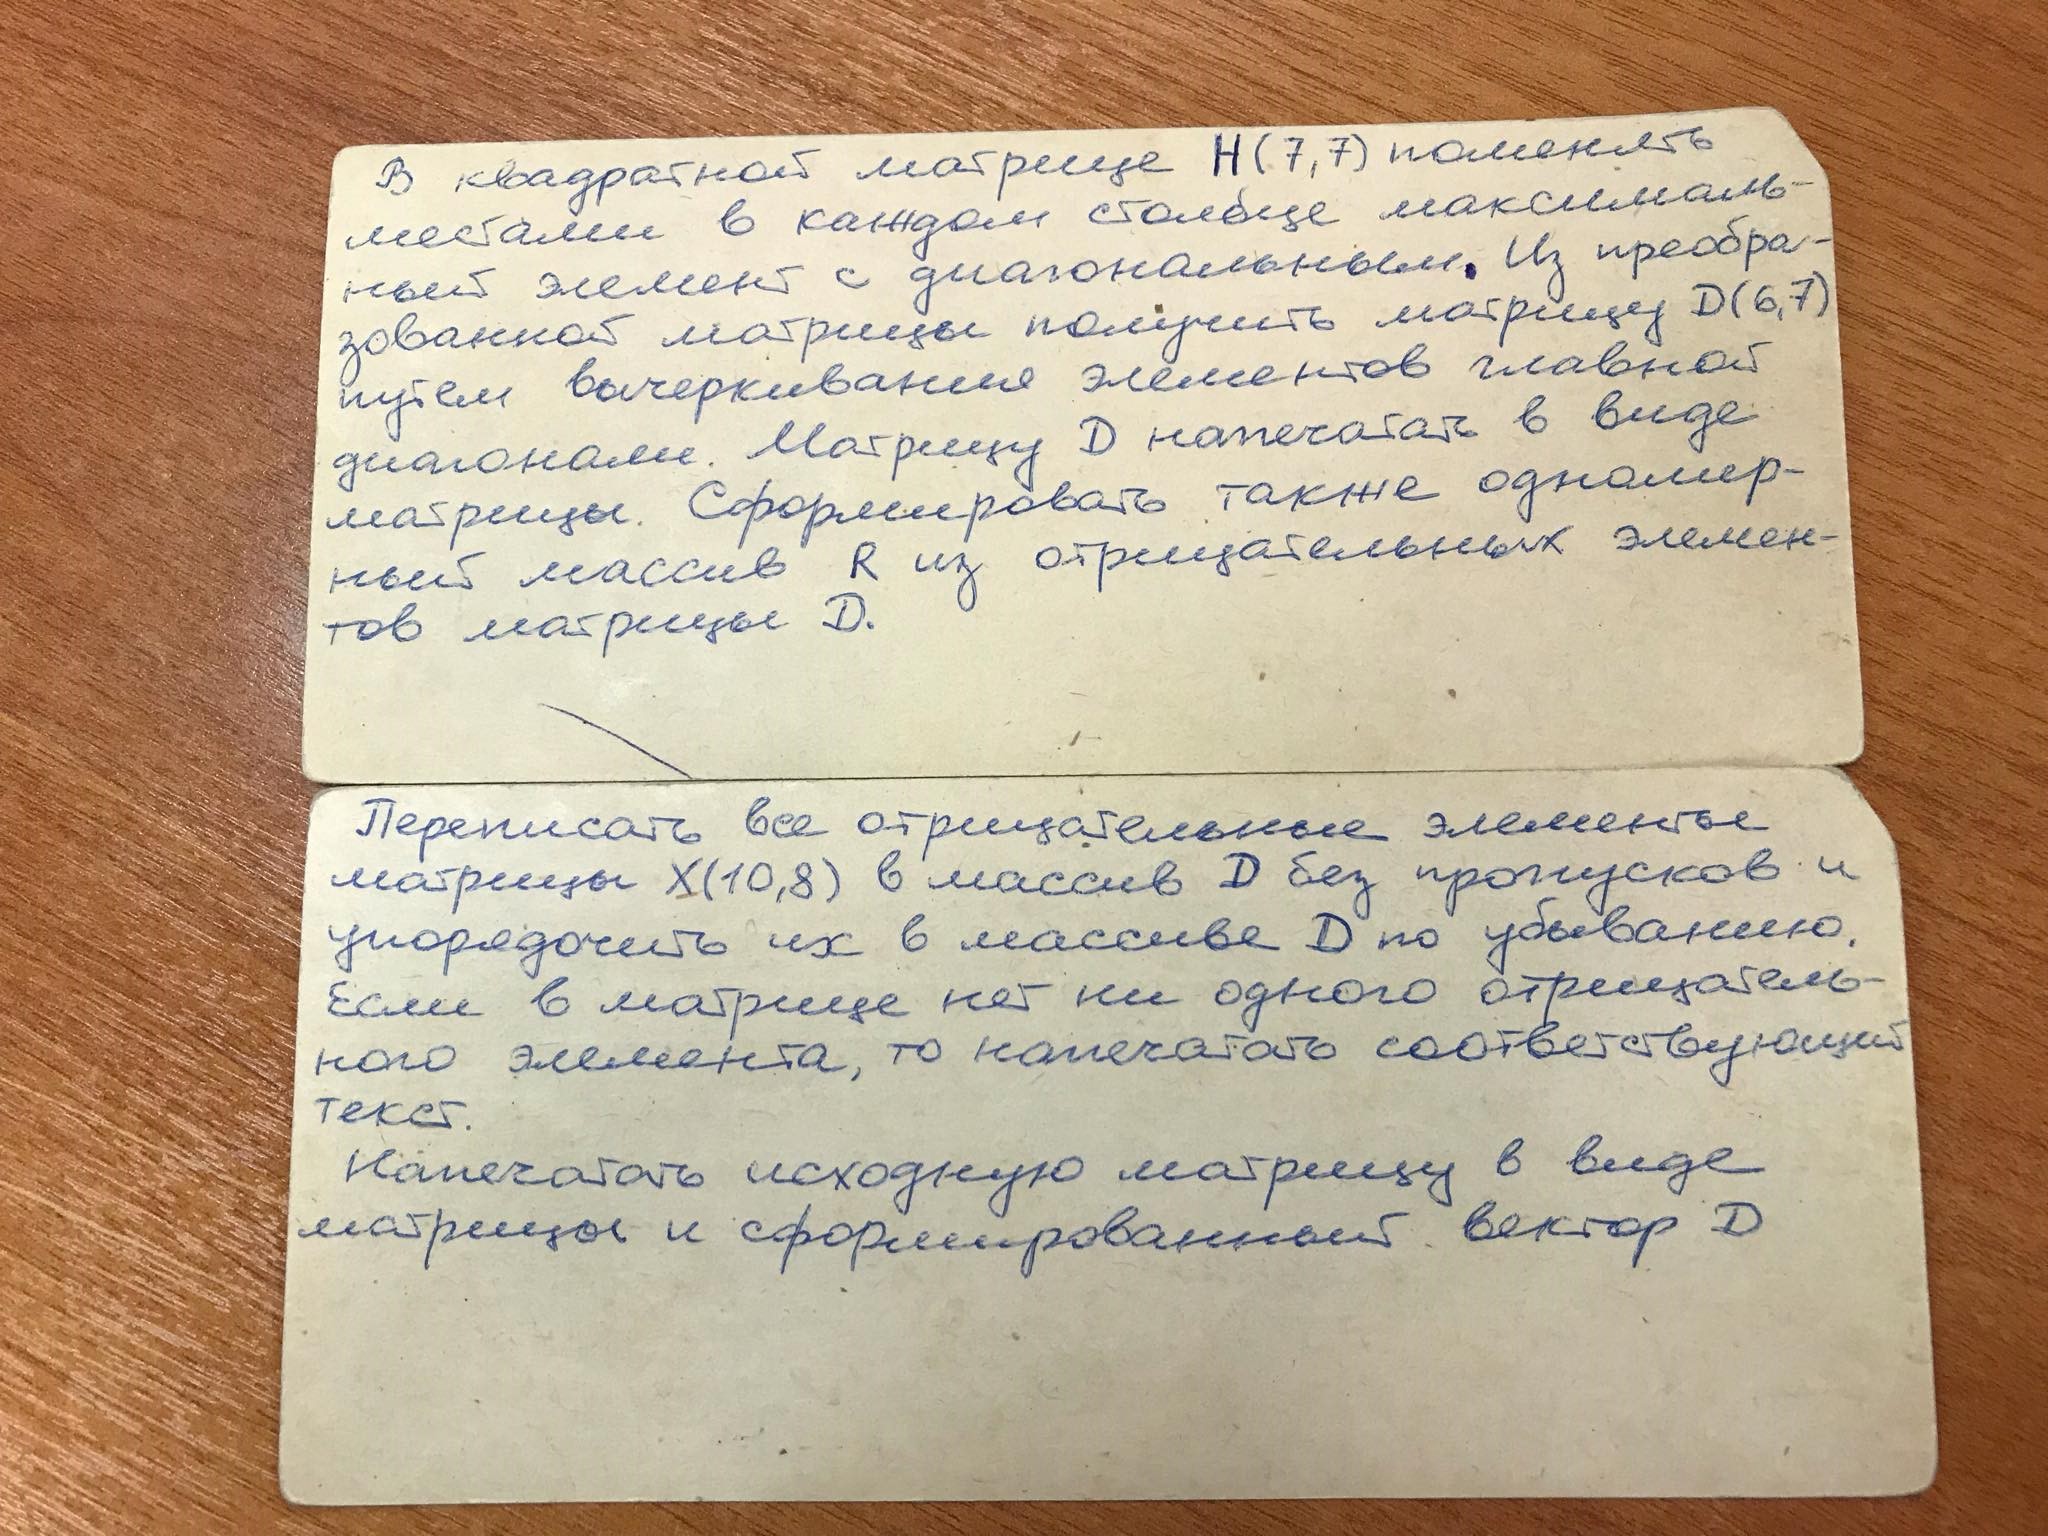 В квадратной матрице H(7,7) поменять
местами в каждом столбце максималь-
ный элемент с диагональным. Из преобра-
зованной матрицы получить матрицу D(6,7)
путем вычеркивания элементов главной
диагонали. Матрицу D напечатать в виде
матрицы. Сформировать также одномер-
ный массив R из отрицательных элемен-
тов матрицы D.
Переписать все отрицательные элементы
матрицы X(10,8) в массив D без пропусков и
упорядочить их в массиве D по убыванию.
Если в матрице нет ни одного отрицатель-
ного элемента, то напечатать соответствующий
текст.
Напечатать исходную матрицу в виде
матрицы и сформированный вектор D